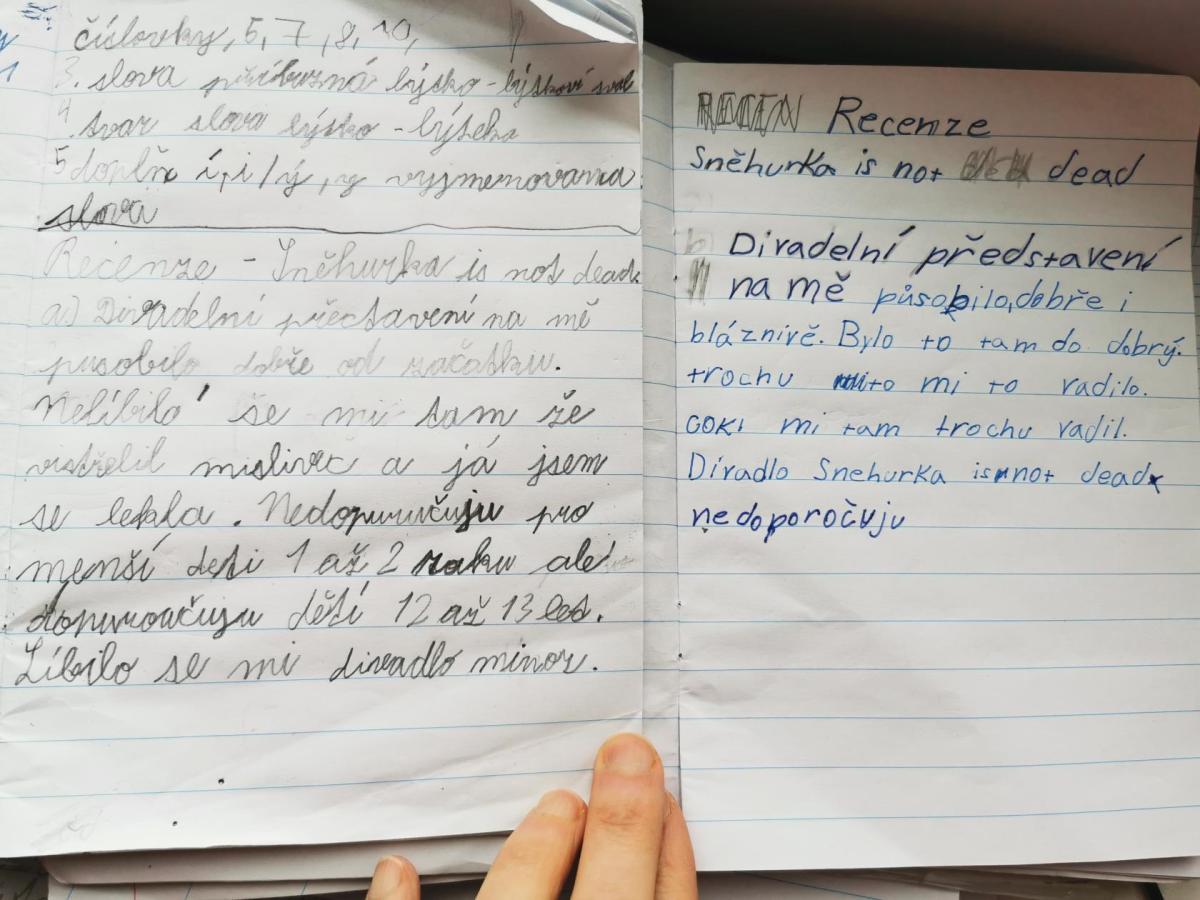 číslovky, 5, 7, 8, 10,
3. slova příbuzná lýtko - lýtkoví sval
4. tvar slova lýtko - lýteka
5 doplň í, i / ý, y vyjmenovaná
slova
Recenze - Sněhurka is not dead
a) Divadelní přectavení na mě
pusobilo dobře od začatku.
Nelíbilo se mi tam že
vistřelil mislivec a já jsem
se lekla. Nedopuručuju pro
menší deti 1 až 2 roku ale
dopuroučuju dětí 12 až 13 let.
Líbilo se mi divadlo minor.
Recenze
Sněhurka is not dead
Divadelní představení
na mě působilo, dobře i
bláznivě. Bylo to tam do dobrý.
trochu mi to vadilo.
COKI mi tam trochu vadil.
Divadlo Snehurka is not dead
nedoporočuju